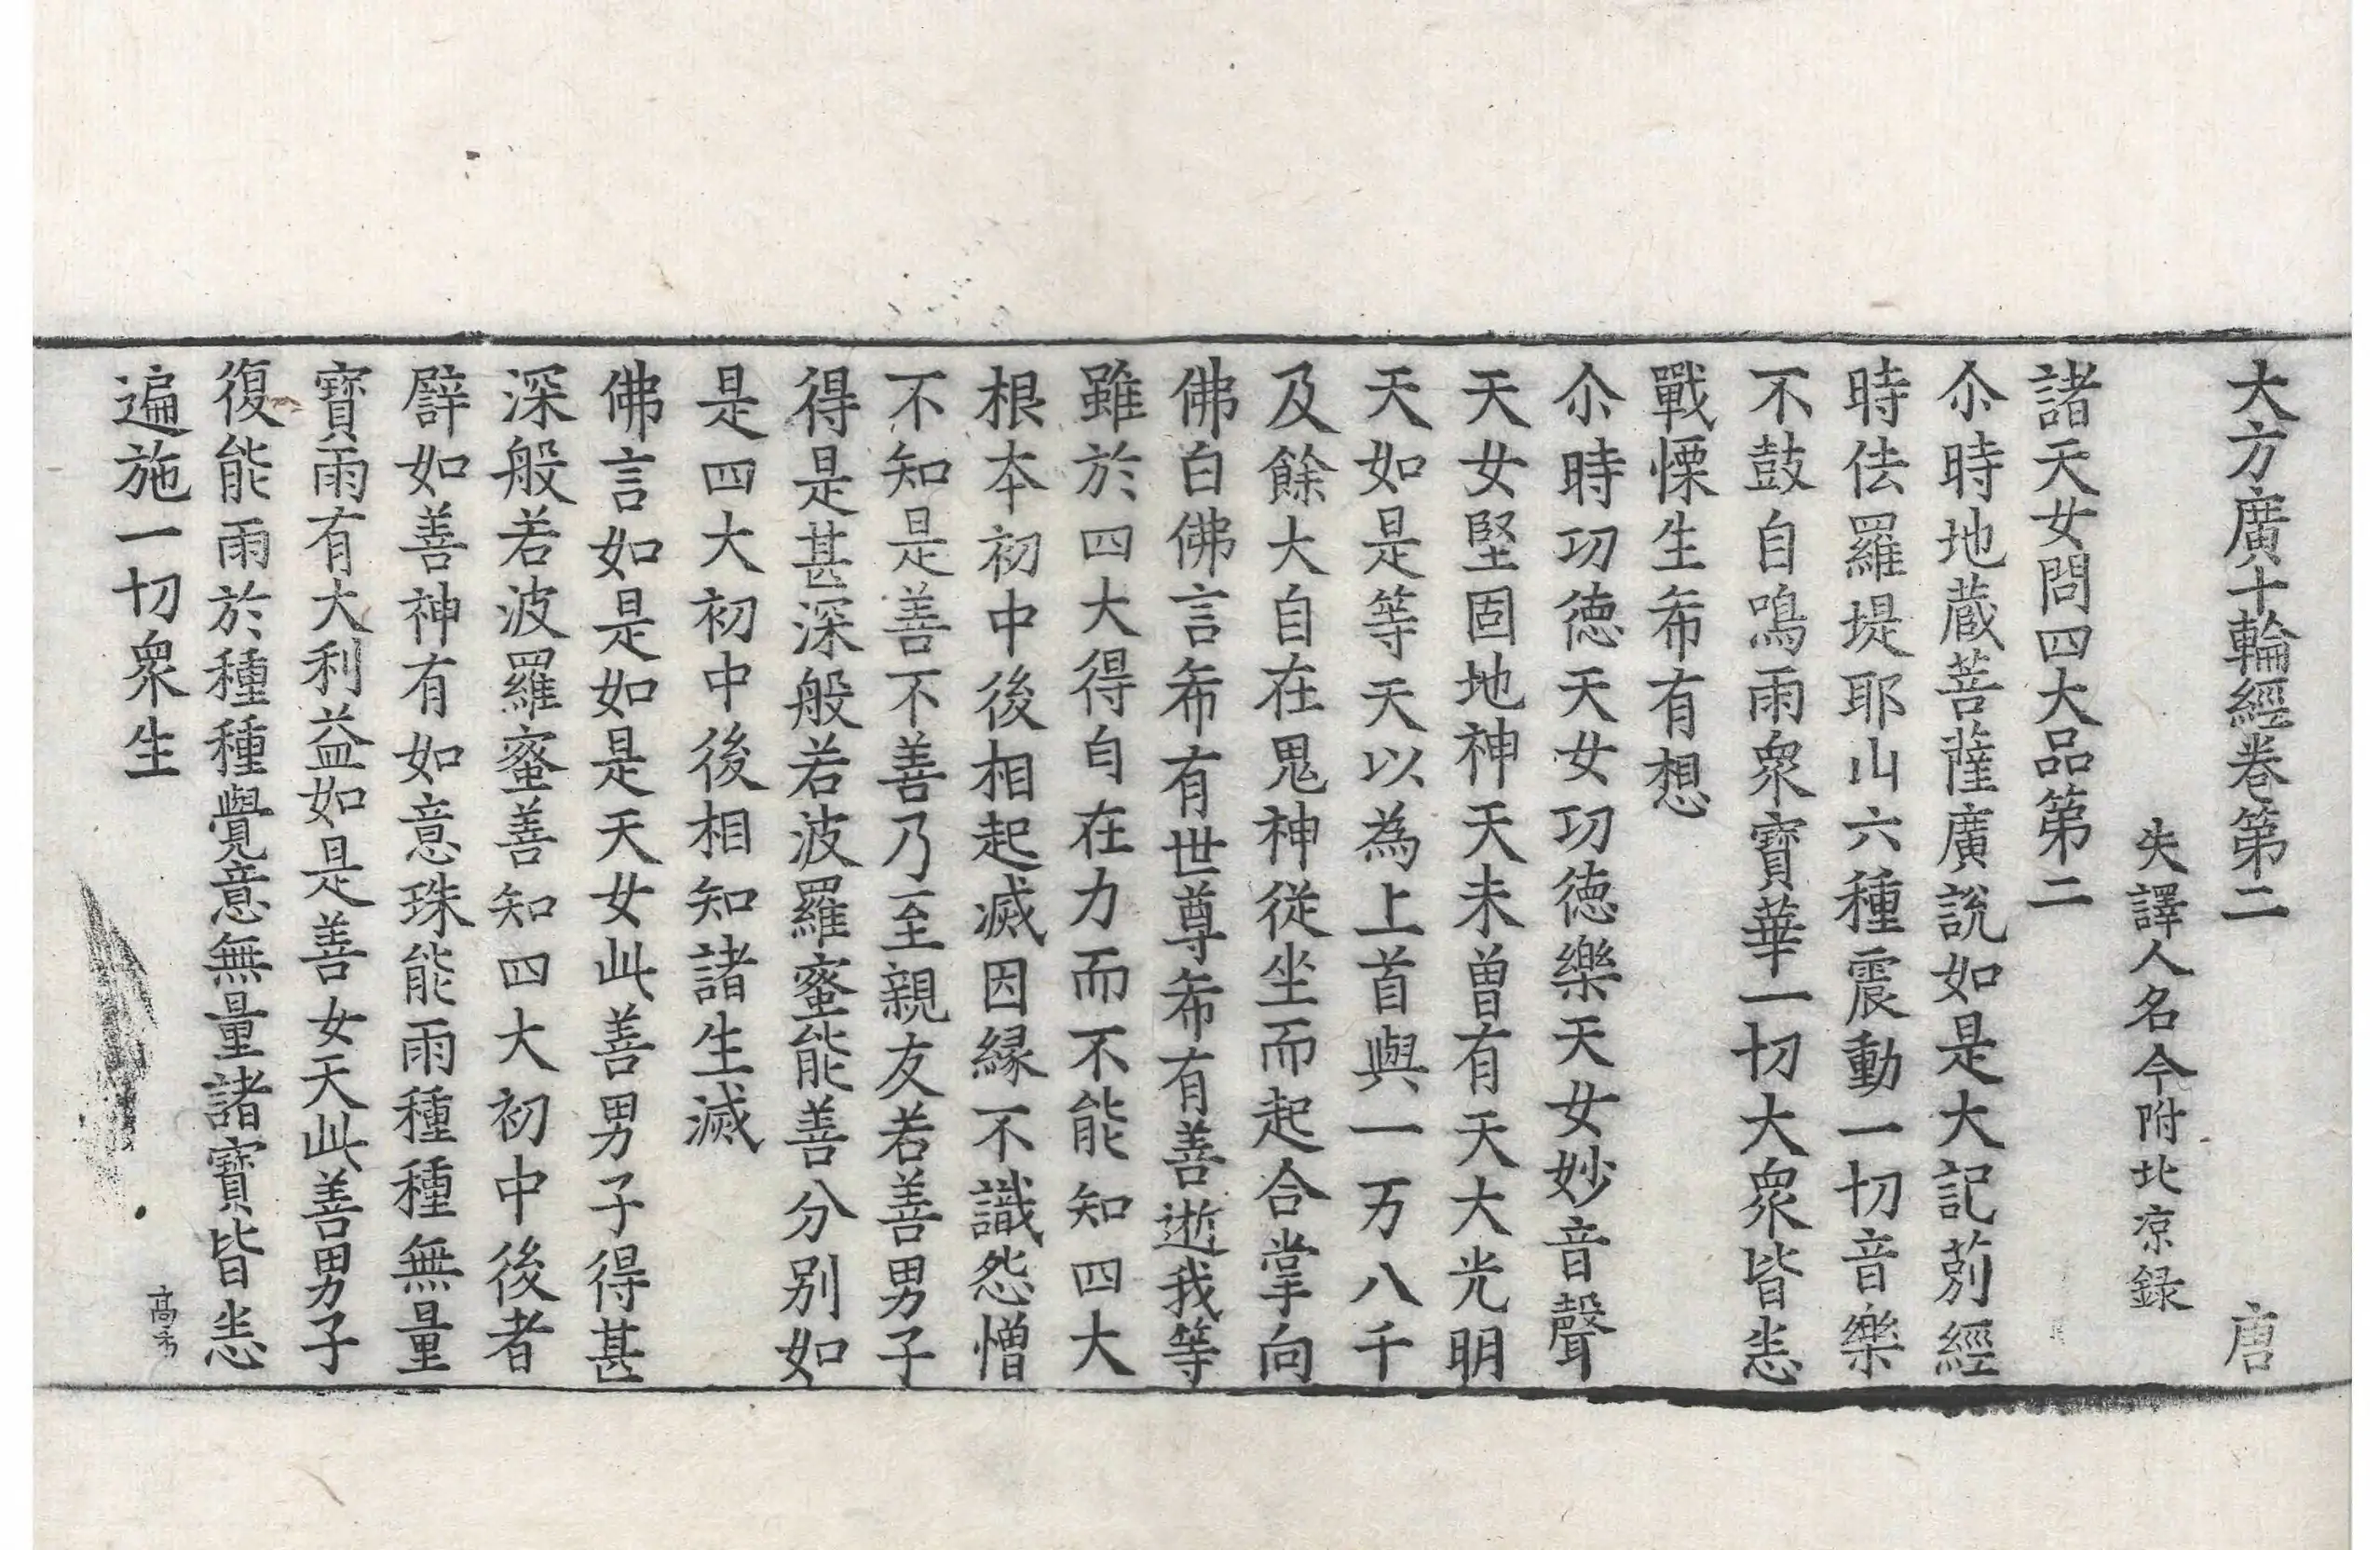 大方廣十輪經卷第二 唐
失譯人名今附北涼録
諸天女問四大品第二
尒時地蔵菩薩廣說如是大記莂經
時佉羅堤耶山六種震動一切音樂
不鼓自鳴雨衆寶華一切大衆皆悉
戰慄生希有想
尒時功徳天女功徳樂天女妙音聲
天女堅固地神天未曽有天大光明
天如是等天以為上首與一万八千
及餘大自在鬼神従坐而起合掌向
佛白佛言希有世尊希有善逝我等
雖於四大得自在力而不能知四大
根本初中後相起滅因縁不識怨憎
不知是善不善乃至親友若善男子
得是甚深般若波羅蜜能善分別如
是四大初中後相知諸生滅
佛言如是如是天女此善男子得甚
深般若波羅蜜善知四大初中後者
譬如善神有如意珠能雨種種無量
寶雨有大利益如是善女天此善男子
復能雨於種種覺意無量諸寶皆悉
遍施一切衆生
高秀